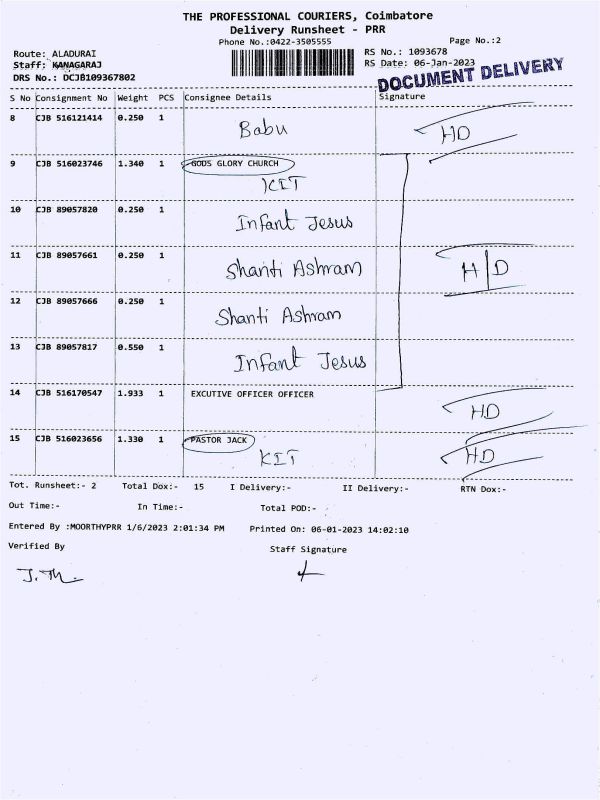 THE PROFESSIONAL COURIERS, Coimbatore
Delivery Runsheet - PRR
Phone No.:0422-3505555
Page No.:2
Route: ALADURAI
RS No.: 1093678
Staff: KANAGARAJ
RS Date: 06-Jan-2023
DRS No.: DCJB109367802
DOCUMENT DELIVERY
S No Consignment No Weight PCS Consignee Details Signature
8 CJB 516121414 0.250 1 Babu HD
9 CJB 516023746 1.340 1 GODS GLORY CHURCH
KIT
10 CJB 89057820 0.250 1 Infant Jesus
11 CJB 89057661 0.250 1 Shanti Ashram H|D
12 CJB 89057666 0.250 1 Shanti Ashram
13 CJB 89057817 0.550 1 Infant Jesus
14 CJB 516170547 1.933 1 EXCUTIVE OFFICER OFFICER HD
15 CJB 516023656 1.330 1 PASTOR JACK
KIT HD
Tot. Runsheet:- 2 Total Dox:- 15 I Delivery:- II Delivery:- RTN Dox:-
Out Time:- In Time:- Total POD:-
Entered By :MOORTHYPRR 1/6/2023 2:01:34 PM Printed On: 06-01-2023 14:02:10
Verified By Staff Signature